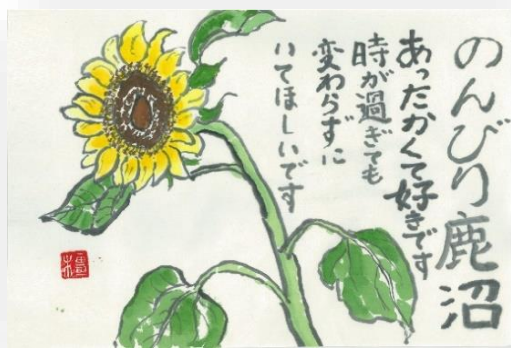 のんびり鹿沼
あったかくて好きです
時が過ぎても
変わらずに
いてほしいです